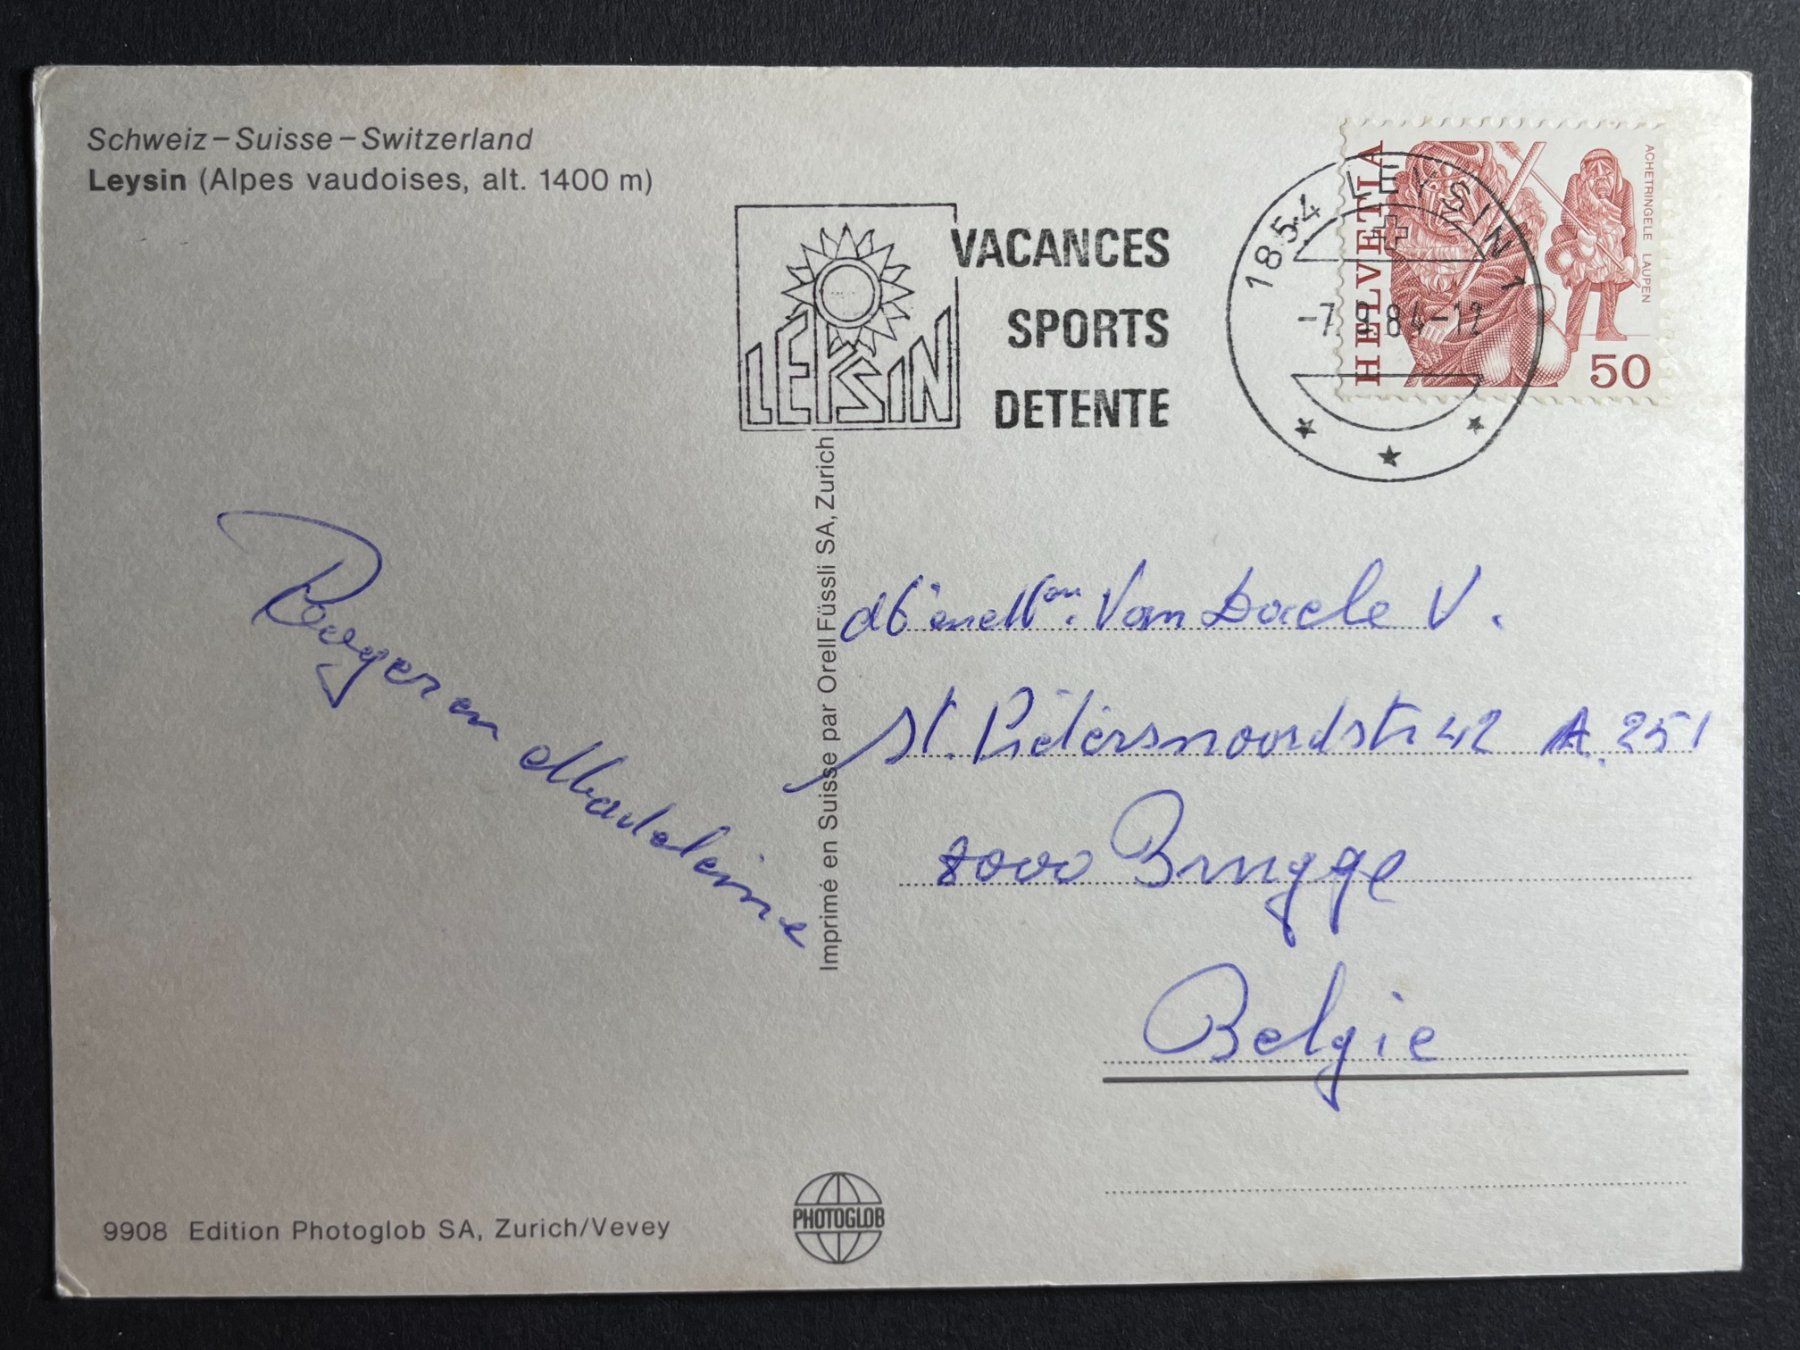 Schweiz – Suisse – Switzerland
Leysin (Alpes vaudoises, alt. 1400 m)
LEYSIN
VACANCES
SPORTS
DETENTE
1854 LEYSIN 1
-7. 84-12
HELVETIA
ACHETRINGELE LAUPEN
50
Roger en Madeleine
Imprimé en Suisse par Orell Füssli SA, Zurich
Van Daele V.
St. Pietersnoordstr 42 A. 251
8000 Brugge
Belgie
9908 Edition Photoglob SA, Zurich/Vevey
PHOTOGLOB